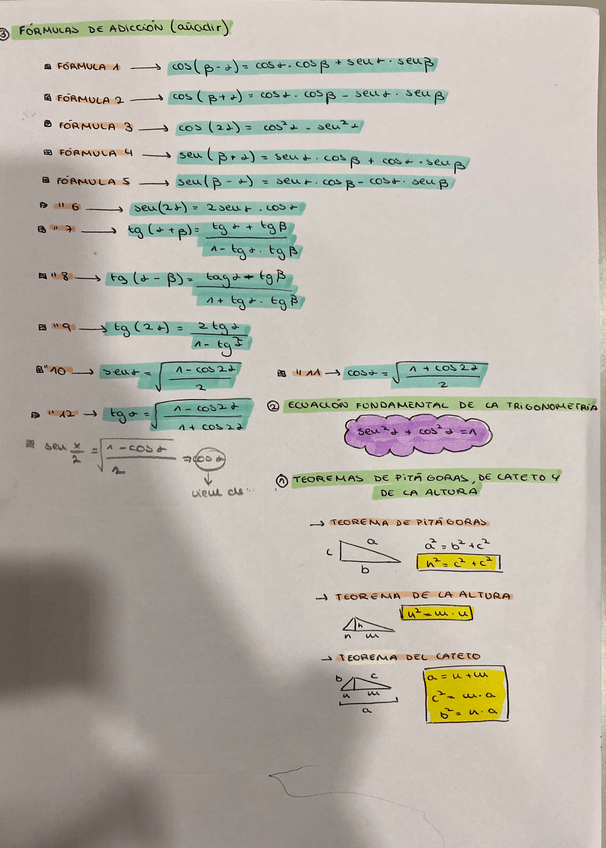 ③ FÓRMULAS DE ADICCIÓN (añadir)
FÓRMULA 1 → cos(β-α) = cosα · cosβ + senα · senβ
FÓRMULA 2 → cos(β+α) = cosα · cosβ - senα · senβ
FÓRMULA 3 → cos(2α) = cos²α - sen²α
FÓRMULA 4 → sen(β+α) = senα · cosβ + cosα · senβ
FÓRMULA 5 → sen(β-α) = senα · cosβ - cosα · senβ
" 6 → sen(2α) = 2senα · cosα
" 7 → tg(α+β) = (tgα + tgβ) / (1 - tgα · tgβ)
" 8 → tg(α-β) = (tagα - tgβ) / (1 + tgα · tgβ)
" 9 → tg(2α) = 2tgα / (1 - tg²)
" 10 → senα = √((1 - cos2α) / 2)
" 11 → cosα = √((1 + cos2α) / 2)
" 12 → tgα = √((1 - cos2α) / (1 + cos2α))
sen x/2 = √((1 - cosα) / 2) → cosα
↓
viene de..
② ECUACIÓN FUNDAMENTAL DE LA TRIGONOMETRÍA
sen²α + cos²α = 1
① TEOREMAS DE PITÁGORAS, DE CATETO Y
DE LA ALTURA
→ TEOREMA DE PITÁGORAS
c a b
a² = b² + c²
h² = c² + c²
→ TEOREMA DE LA ALTURA
h² = m · n
h n m
→ TEOREMA DEL CATETO
b c
n m
a
a = n + m
c² = m · a
b² = n · a